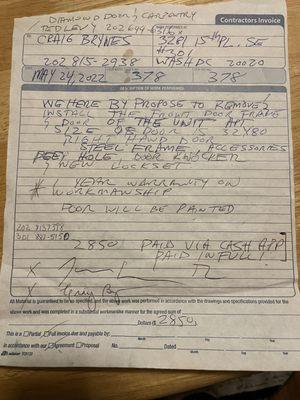 Contractors Invoice
DIAMOND DOOR & CARPENTRY
TED LEVY 202 644
CRAIG BRYNES 3281 15TH PL. SE
#201
202 815-2938 WASH DC 20020
MAY 24, 2022 378 378
DESCRIPTION OF WORK PERFORMED
WE HERE BY PROPOSE TO REMOVE &
INSTALL THE FRONT DOOR FRAME
& DOOR OF THE UNIT AN
SIZE OF DOOR IS 32X80
RIGHT HAND DOOR
STEEL FRAME, ACCESSORIES
PEEP HOLE DOOR KNOCKER
& NEW LOCKSET
* 1 YEAR WARRANTY ON
WORKMANSHIP
DOOR WILL BE PAINTED
2850 PAID VIA CASH APP
PAID IN FULL!
X
X
All Material is guaranteed to be as specified, and the above work was performed in accordance with the drawings and specifications provided for the
above work and was completed in a substantial workmanlike manner for the agreed sum of
Dollars ($ 2850
This is a Partial Full invoice due and payable by:
Month Day Year
in accordance with our Agreement Proposal No. Dated
Month Day Year
adams